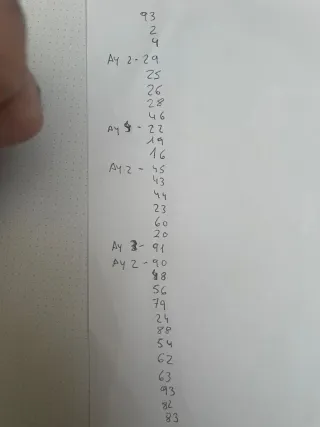 93
2
4
Ay 2 - 29
25
26
28
46
Ay 4 - 22
19
16
Ay 2 - 45
43
44
23
60
20
Ay 3 - 91
Ay 2 - 90
48
56
79
24
88
54
62
63
93
82
83